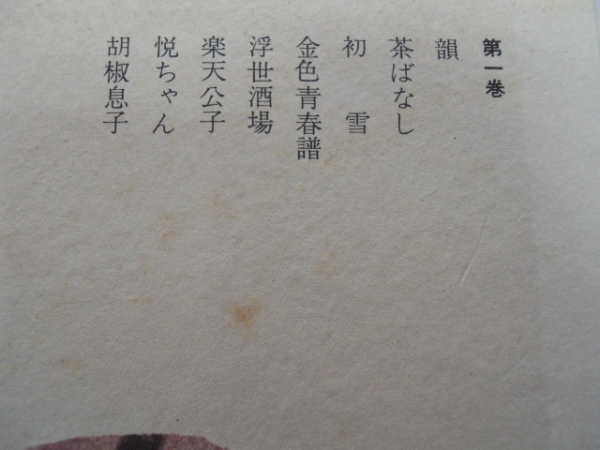 第一巻
韻
茶ばなし
初雪
金色青春譜
浮世酒場
楽天公子
悦ちゃん
胡椒息子